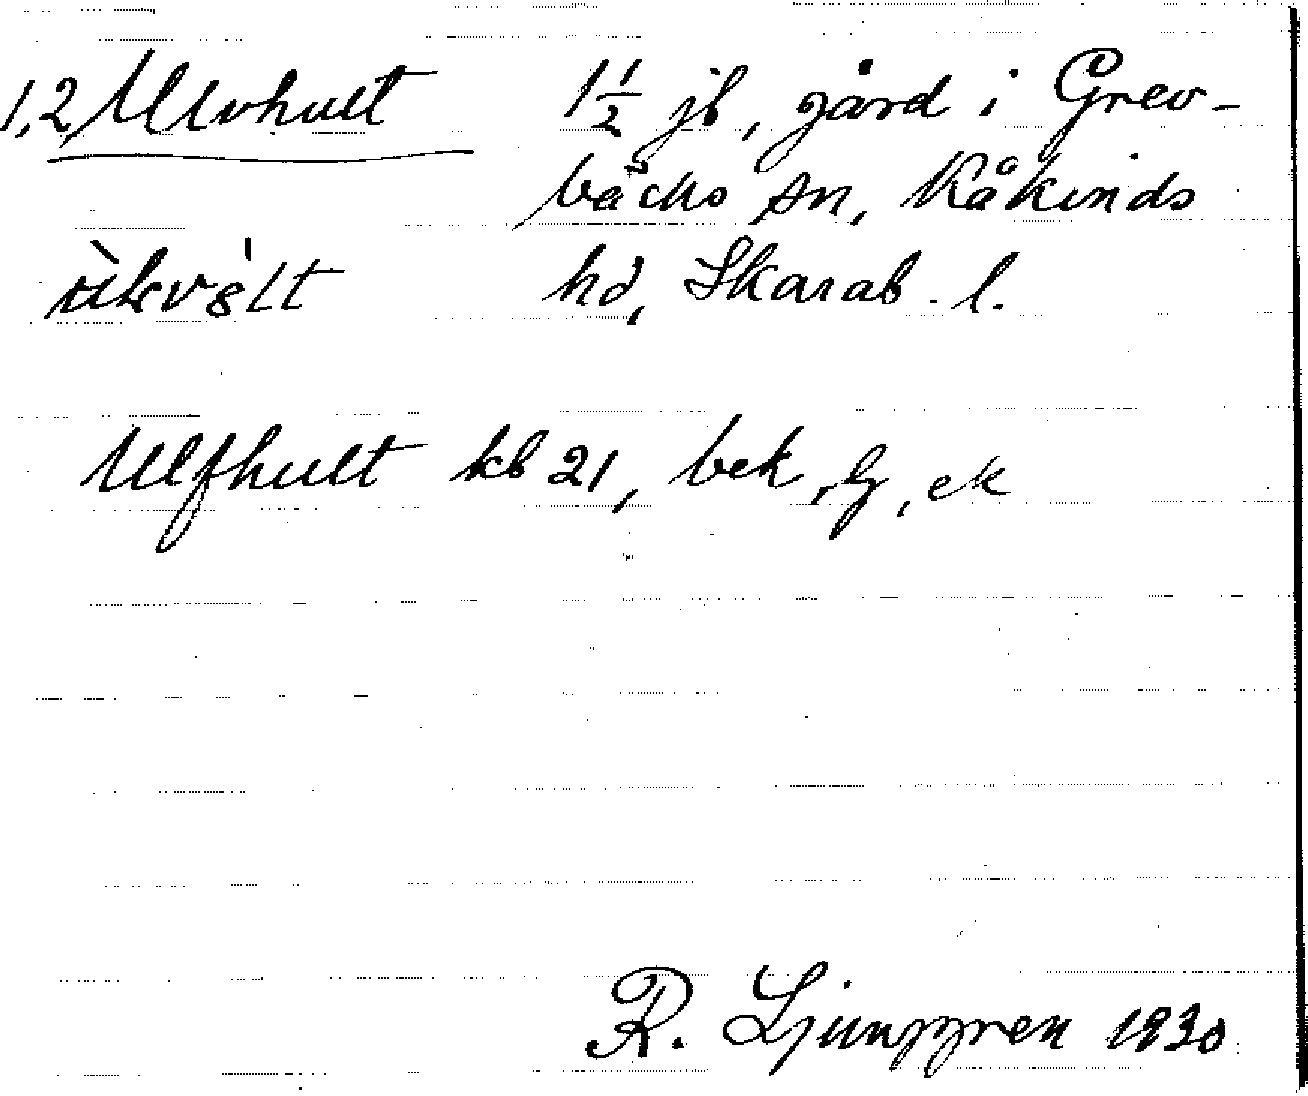 1,2 Ulvhult 1½ jb, gård i Grev-
bäcks sn, Kåkinds
hd, Skarab. l.
Ulfhult kb 21, bek, G, ek
R. Ljunggren 1930